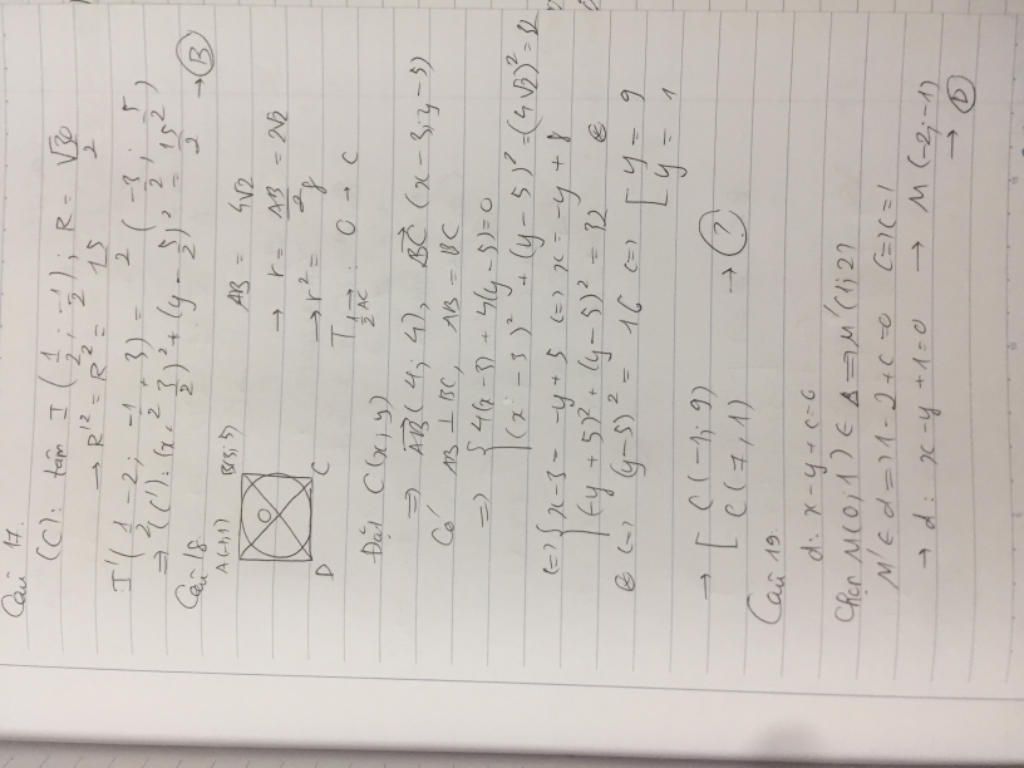 Câu 17.
(C): tâm I (1/2; -1/2); R = √30/2
→ R'² = R² = 15/2
I' (1/2 - 2; -1/2 + 3) = (-3/2; 5/2)
⇒ (C'): (x + 3/2)² + (y - 5/2)² = 15/2 → Ⓑ
Câu 18.
A(-1;1) B(3;5)
O
D C
AB = 4√2
→ r = AB/2 = 2√2
→ r² = 8
T 1/2 AC : O → C
Đặt C(x, y)
⇒ AB (4; 4), BC (x - 3; y - 5)
Có AB ⊥ BC, AB = BC
⇒ { 4(x - 3) + 4(y - 5) = 0
(x - 3)² + (y - 5)² = (4√2)² = 32
(=) { x - 3 = -y + 5 (=) x = -y + 8
(-y + 5)² + (y - 5)² = 32
(=) (y - 5)² = 16 (=) [ y = 9
y = 1
→ [ C (-1; 9)
C (7, 1) → (?)
Câu 19.
d: x - y + c = 0
Chọn M(0,1) ∈ Δ ⇒ M'(1;2)
M' ∈ d ⇒ 1 - 2 + c = 0 (=) c = 1
→ d: x - y + 1 = 0 → M (-2; -1)
→ Ⓓ